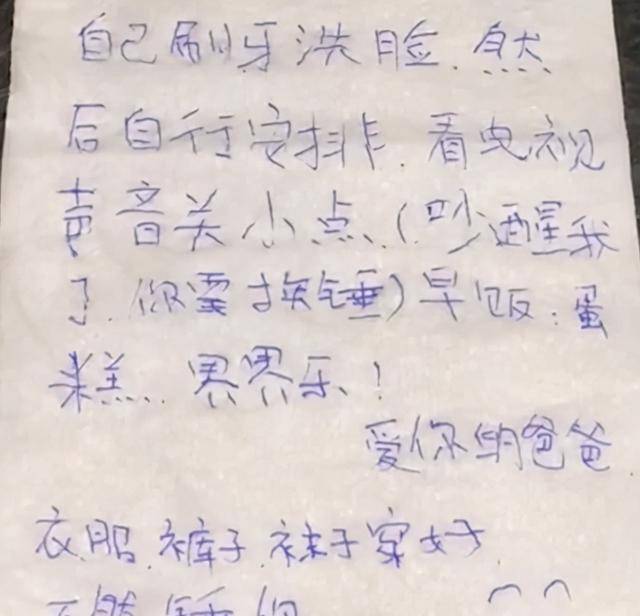 自己刷牙洗脸.然
后自行安排.看电视
声音关小点.(吵醒我
了.你要挨锤)早饭:蛋
糕..界界乐!
爱你的爸爸.
衣服.裤子.袜子穿好
不然